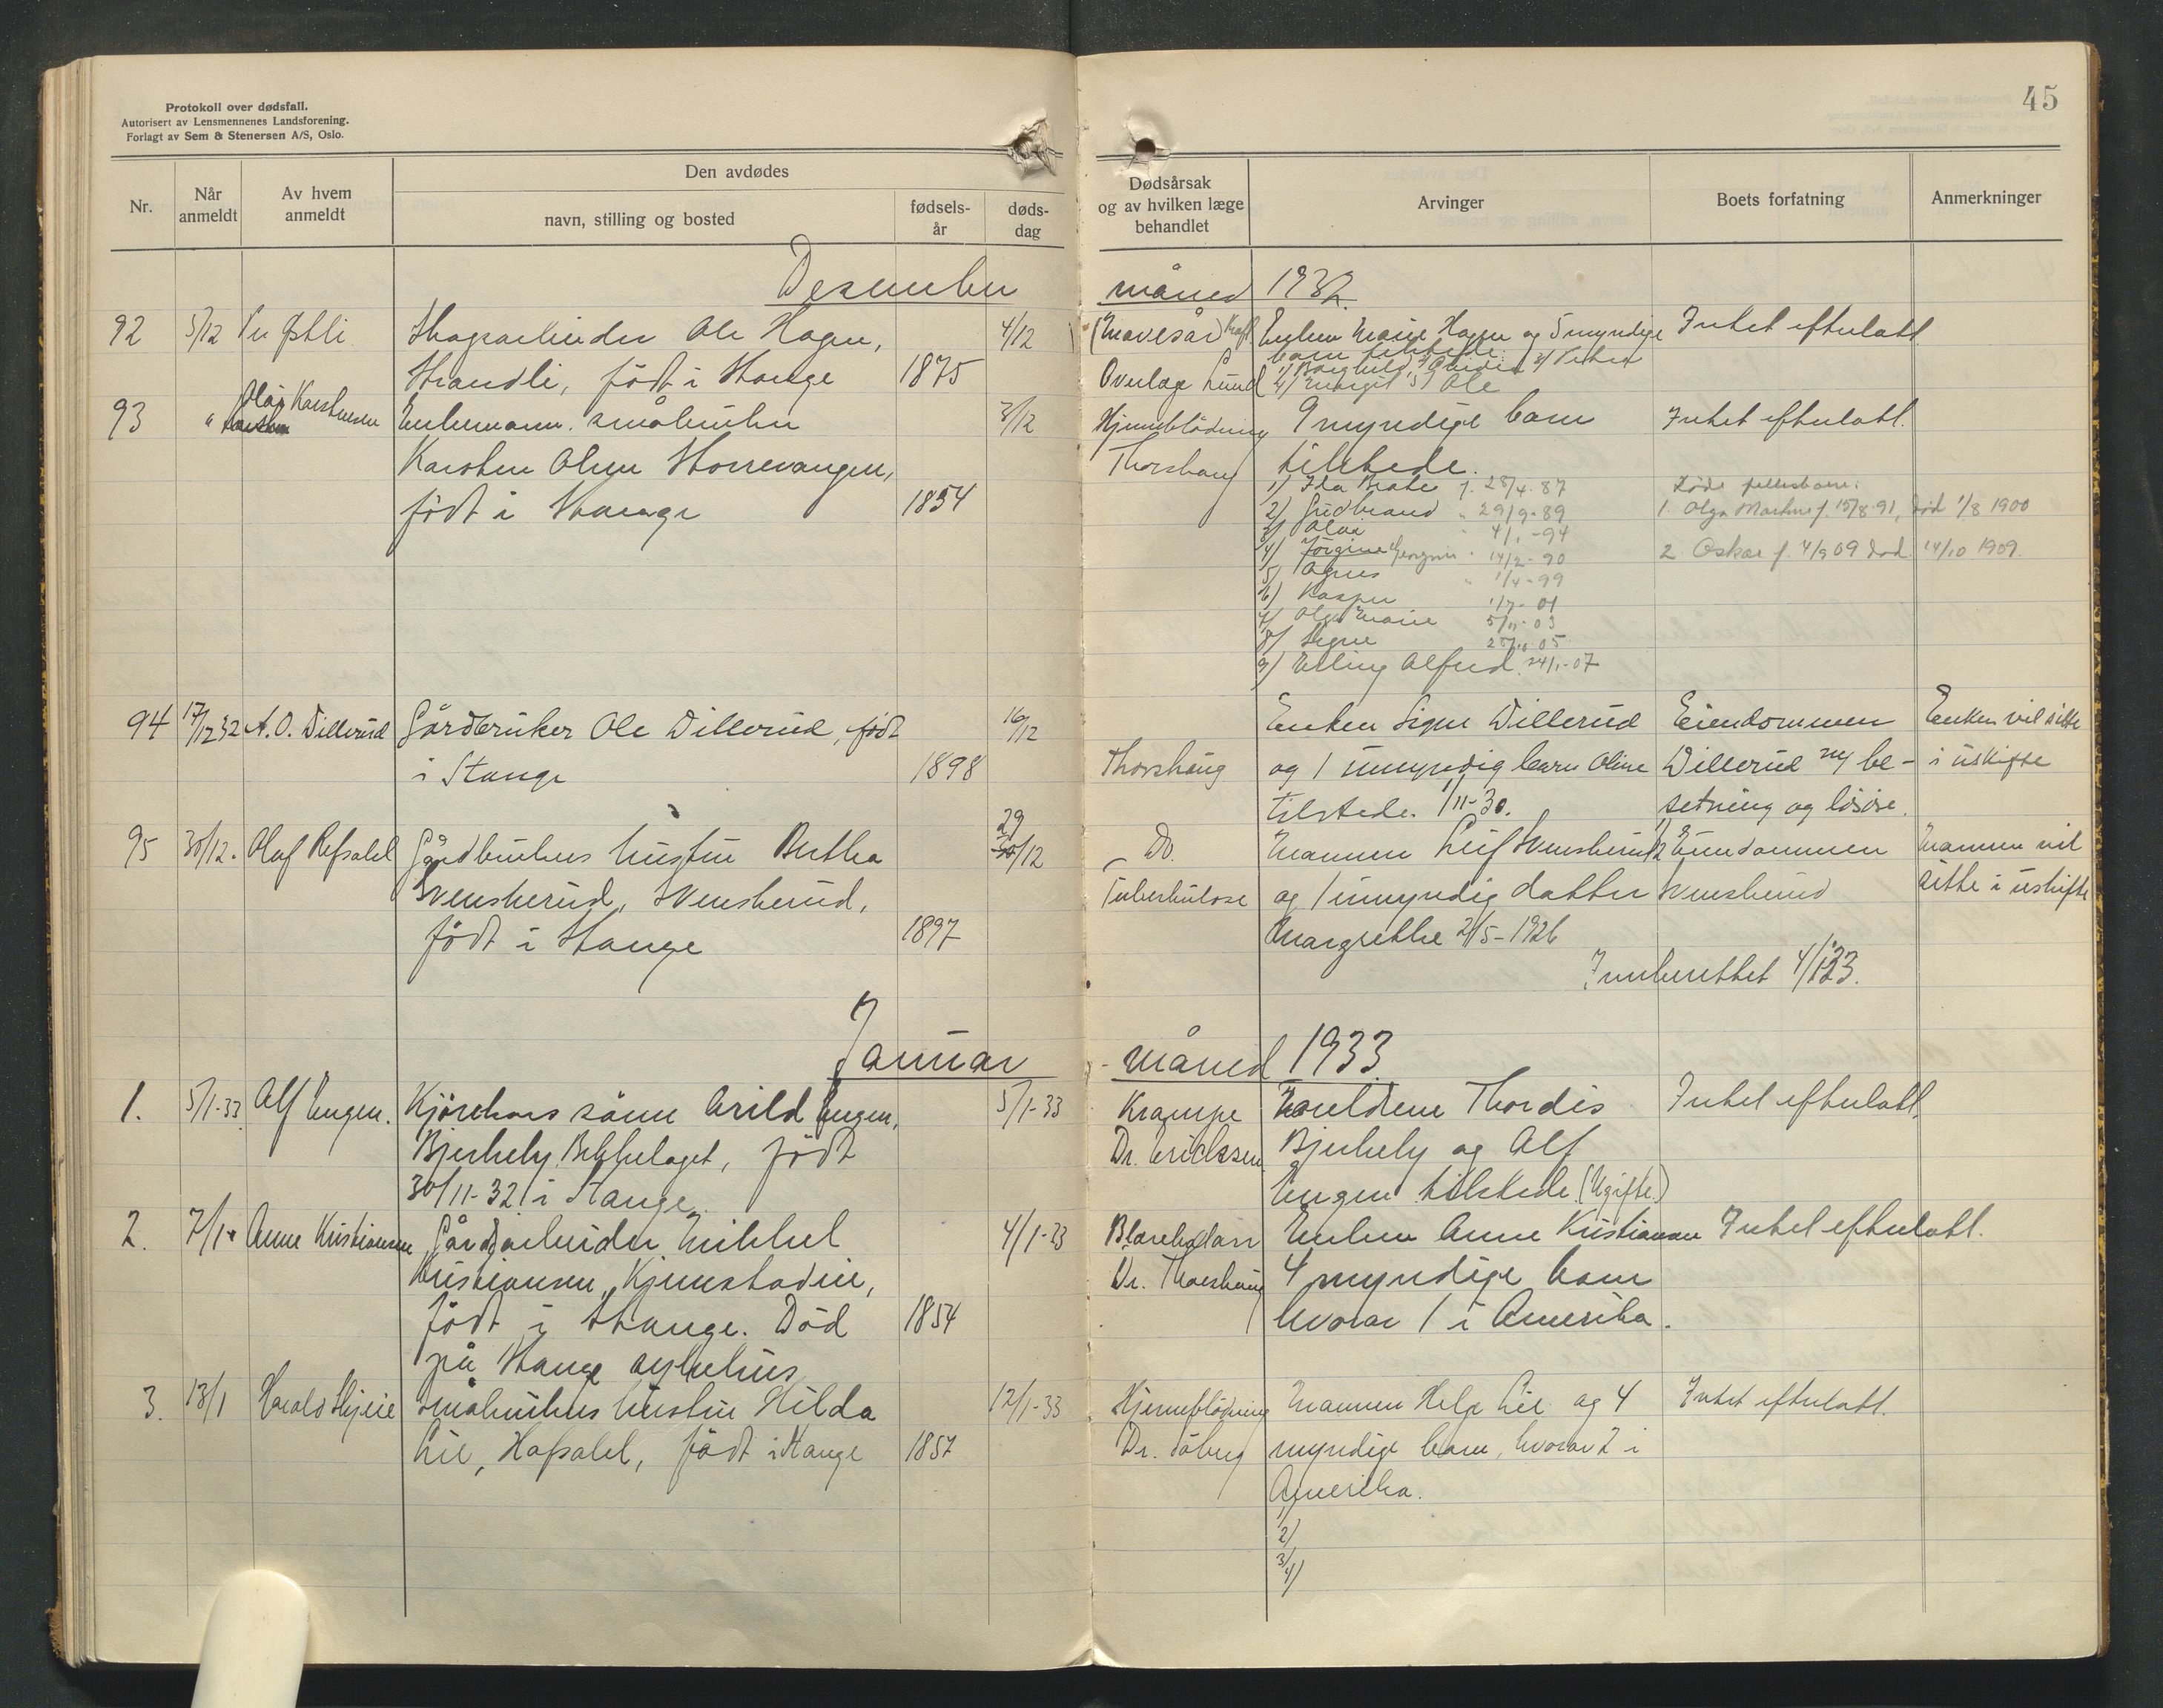 Protokoll over dødsfall.
Autorisert av Lensmennenes Landsforening.
Forlagt av Sem & Stenersen A/S, Oslo.
45
Nr.
Når anmeldt
Av hvem anmeldt
Den avdødes
navn, stilling og bosted
fødsels-år
døds-dag
Dødsårsak og av hvilken læge behandlet
Arvinger
Boets forfatning
Anmerkninger
Desember måned 1932.
92 5/12 Per Østli Skogsarbeider Ole Hagen, 4/12 (Mavesår) Kreft Enken Marie Hagen og 5 myndige Intet efterlatt
Strandli, født i Stange 1875 Overlæge Lund barn tilstede:
1) Borghild, 3) Petra
4) Margit 5) Ole
93 " Olaf Karstensen Enkemann. småbruker 3/12 Hjerneblødning 9 myndige barn Intet efterlatt.
Karsten Olsen Storrevangen, Thorshaug tilstede.
født i Stange 1854
1) Ida Beate f. 28/4-87 Døde fellesbarn:
2) Gudbrand " 29/9-89 1. Olga Martine f. 15/8-91, død 1/8 1900
3) Olai " 4/1-94
4) Jørgine Georgine " 14/2-90 2 Oskar f. 4/9 09 død 14/10 1909.
5) Agnes " 1/4-99
6) Kasper 1/7-01
7) Olga Marie 5/11-03
8) Signe 25/10 05
9) Erling Alfred 24/1-07
94 17/12 32 A. O. Dillerud Gårdbruker Ole Dillerud, født 16/12 Enken Signe Dillerud Eiendommen Enken vil sitte
i Stange 1898 Thorshaug og 1 umyndig barn Oline Dillerud m/ be- i uskifte
tilstede. 1/11-30. setning og løsøre.
95 30/12. Olaf Refsahl Gårdbrukers hustru Bertha 29/12 Do. Mannen Leif Svenskerud 1/2 Eiendommen Mannen vil
Svenskerud, Svenskerud, Tuberkulose og 1 umyndig datter Svenskerud sitte i uskifte
født i Stange 1897 Margrethe 2/5-1926
Innberettet 4/1 33.
Januar - måned 1933.
1. 5/1-33. Alf Engen. Kjørekars sønn Arild Engen, 5/1-33 Krampe Foreldrene Thordis Intet efterlatt.
Bjerkely, Bekkelaget, født Dr. Ericksen Bjerkely og Alf
30/11-32 i Stange. Engen tilstede (Ugifte.)
2. 7/1 Anne Kristiansen Gårdsarbeider Mikkel 4/1-33 Enken Anne Kristiansen Intet efterlatt.
Kristiansen, Dr. Thorshaug 4 myndige barn
født i Stange. Død 1854 hvorav 1 i Amerika.
på Stange sykehus
3. 13/1 Harald Skjeie Småbrukers hustru Hilda 12/1-33 Hjerneblødning Mannen Helge Lie og 4 Intet efterlatt.
Lie, Hofsahl, født i Stange 1857 Dr. Såberg myndige barn, hvorav 2 i
Amerika.
1)
2)
3)
4)